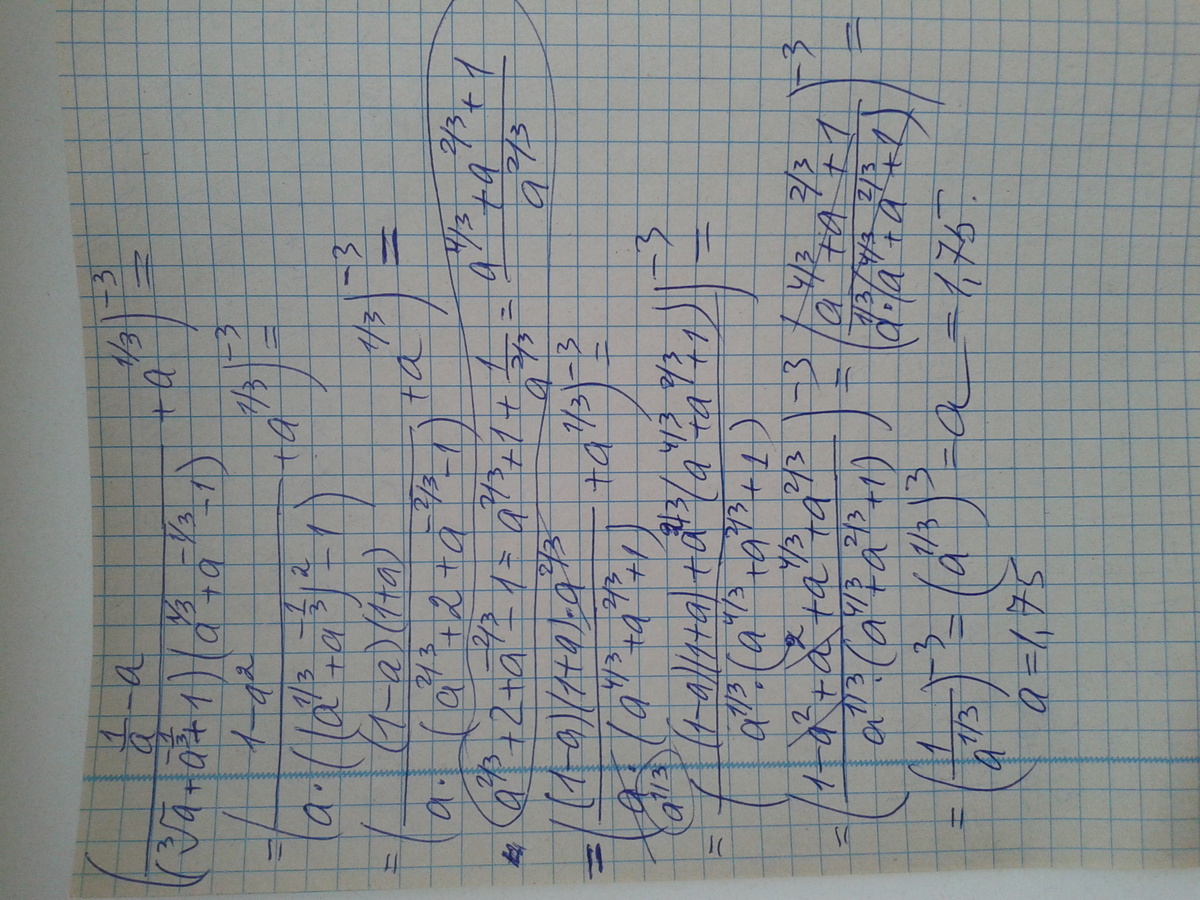 ( (1/a - a) / ((∛a + a^(-1/3) + 1)(a^(1/3) + a^(-1/3) - 1)) + a^(1/3) )^(-3) =
= ( (1-a^2) / (a·((a^(1/3) + a^(-1/3))^2 - 1)) + a^(1/3) )^(-3) =
= ( (1-a)(1+a) / (a·(a^(2/3) + 2 + a^(-2/3) - 1)) + a^(1/3) )^(-3) =
a^(2/3) + 2 + a^(-2/3) - 1 = a^(2/3) + 1 + 1/a^(2/3) = (a^(4/3) + a^(2/3) + 1) / a^(2/3)
= ( (1-a)(1+a)·a^(2/3) / (a·(a^(4/3) + a^(2/3) + 1)) + a^(1/3) )^(-3) =
a^(1/3)
= ( ((1-a)(1+a) + a^(2/3)(a^(4/3) + a^(2/3) + 1)) / (a^(1/3)·(a^(4/3) + a^(2/3) + 1)) )^(-3) =
= ( (1 - a^2 + a^2 + a^(4/3) + a^(2/3)) / (a^(1/3)·(a^(4/3) + a^(2/3) + 1)) )^(-3) = ( (a^(4/3) + a^(2/3) + 1) / (a^(1/3)·(a^(4/3) + a^(2/3) + 1)) )^(-3) =
= ( 1/a^(1/3) )^(-3) = (a^(1/3))^3 = a = 1,75.
a = 1,75